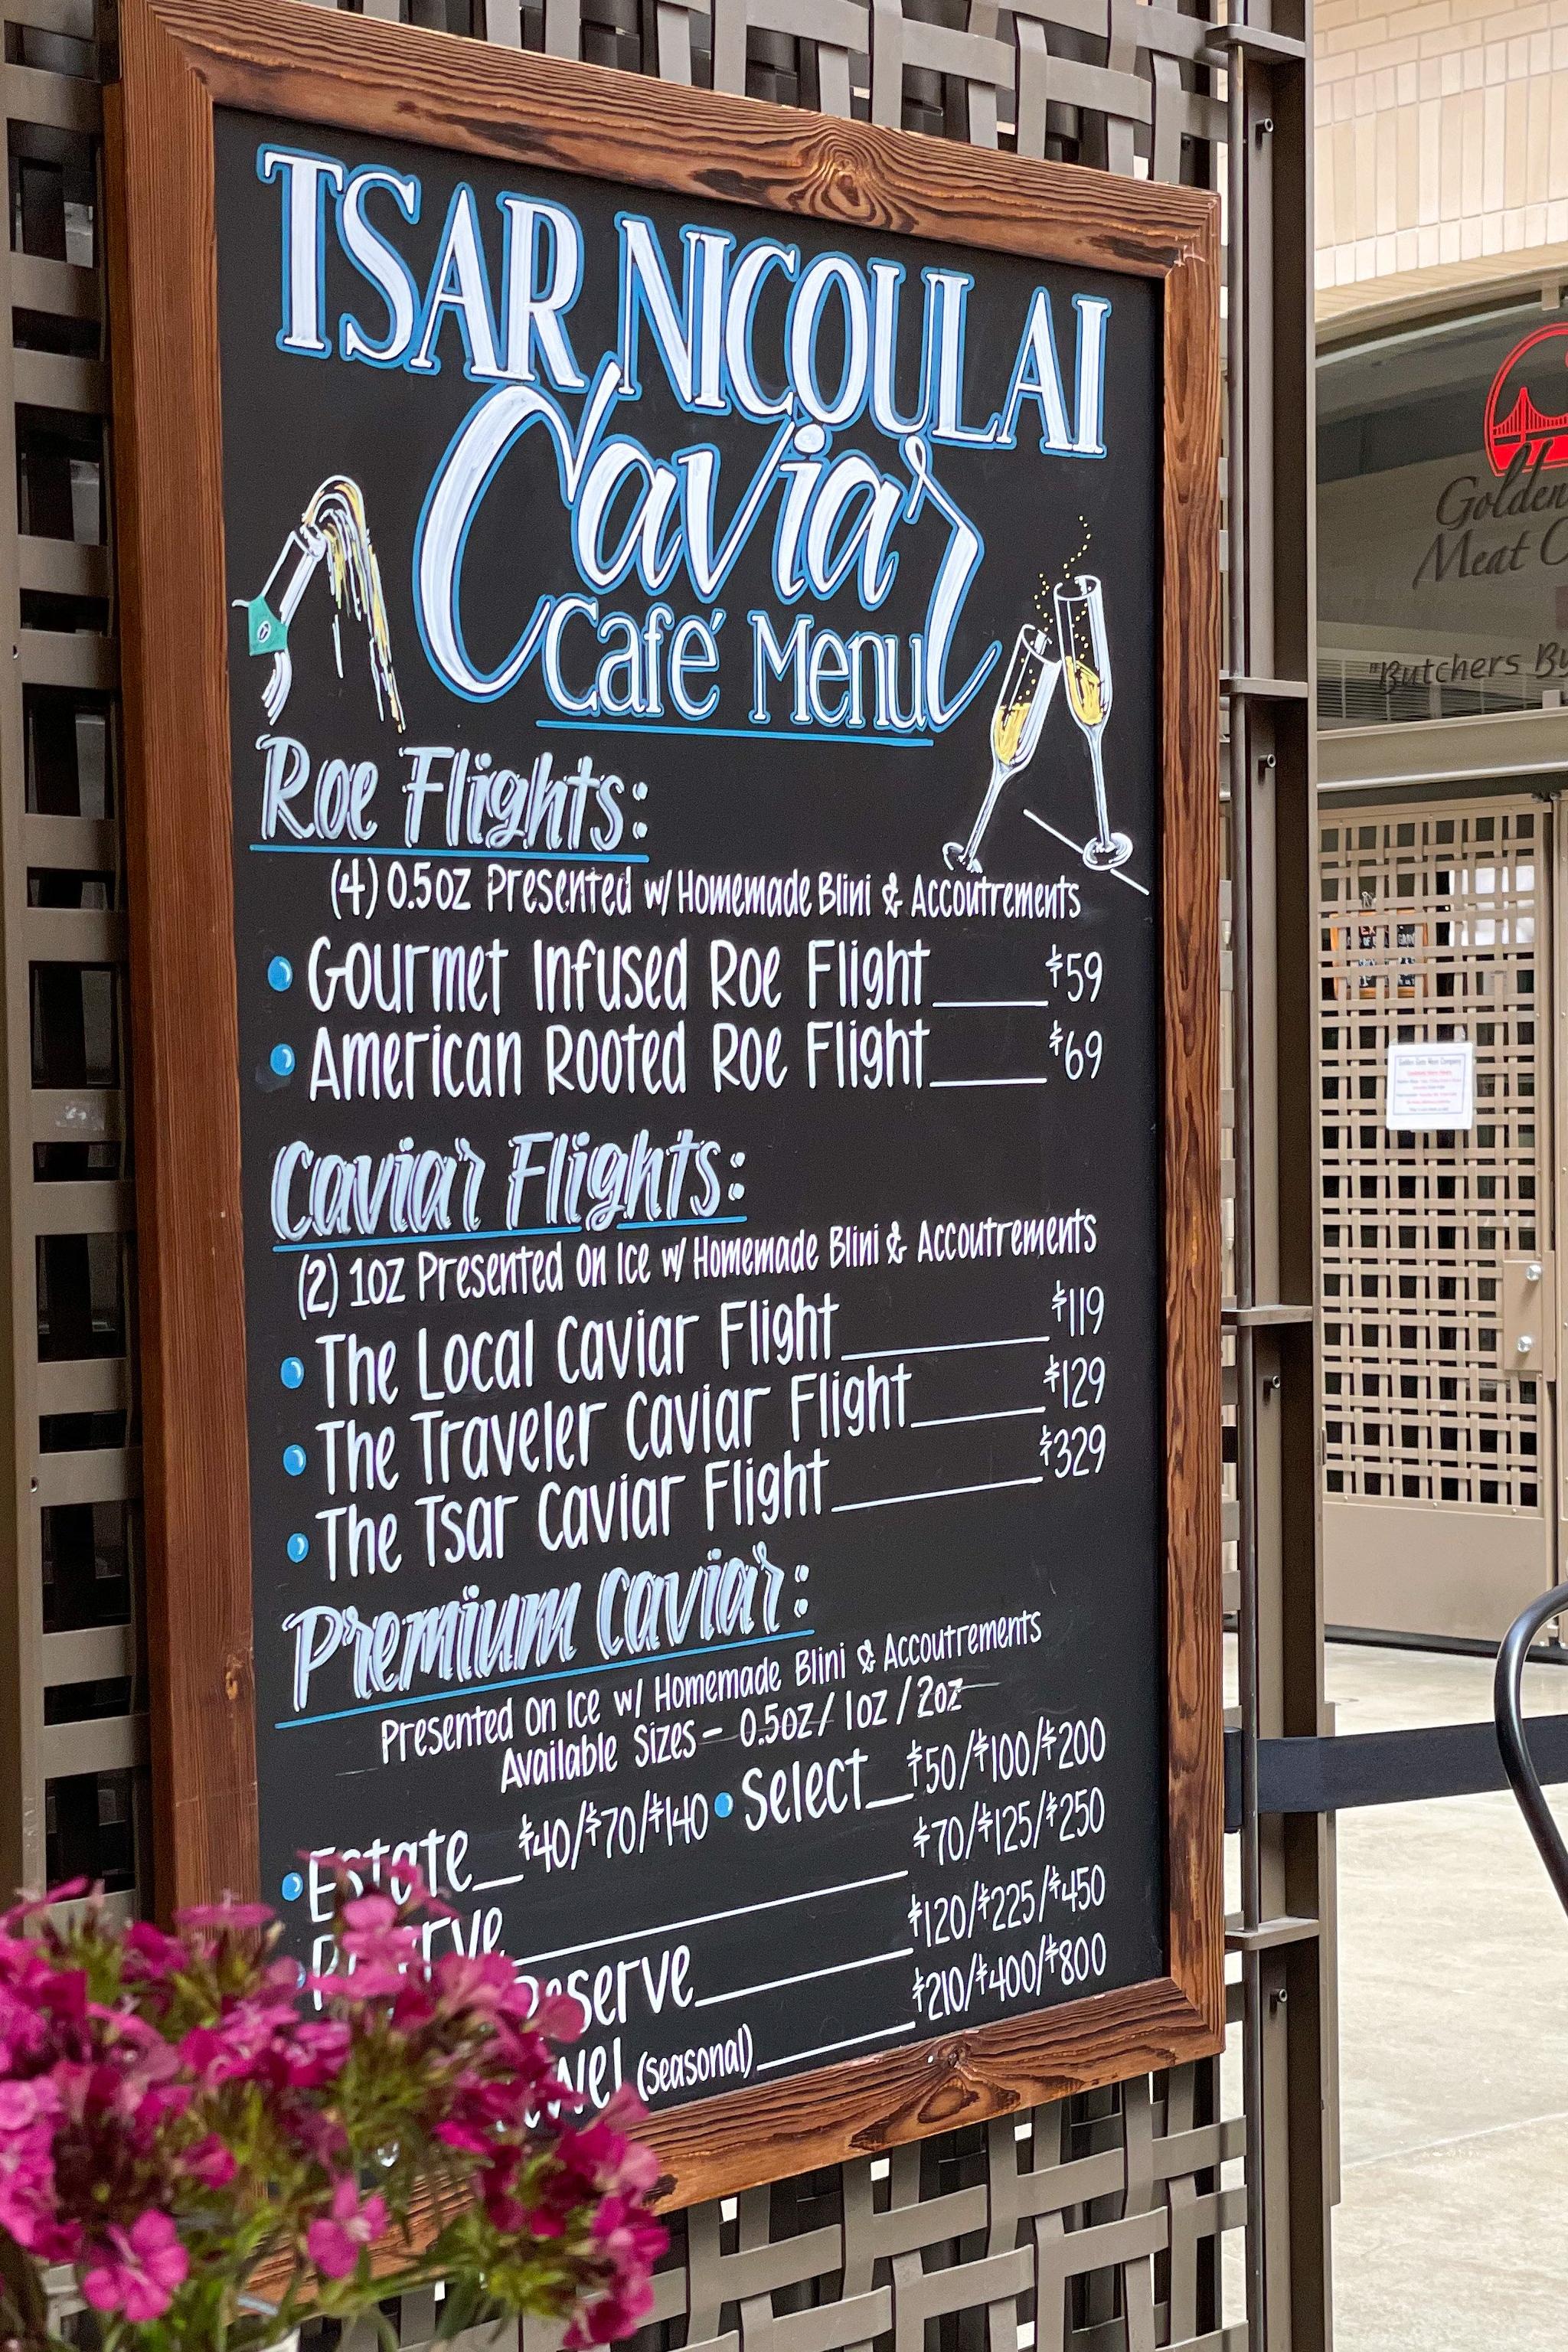 TSAR NICOULAI
Caviar
Café Menu
Roe Flights:
(4) 0.5oz Presented w/ Homemade Blini & Accoutrements
Gourmet Infused Roe Flight $59
American Rooted Roe Flight $69
Caviar Flights:
(2) 1oz Presented On Ice w/ Homemade Blini & Accoutrements
The Local Caviar Flight $119
The Traveler Caviar Flight $129
The Tsar Caviar Flight $329
Premium Caviar:
Presented On Ice w/ Homemade Blini & Accoutrements
Available Sizes - 0.5oz / 1oz / 2oz
Estate $40/$70/$140 • Select $50/$100/$200
$70/$125/$250
Reserve $120/$225/$450
(seasonal) $210/$400/$800
Golden
Meat
"Butchers By
Golden Gate Meat Company